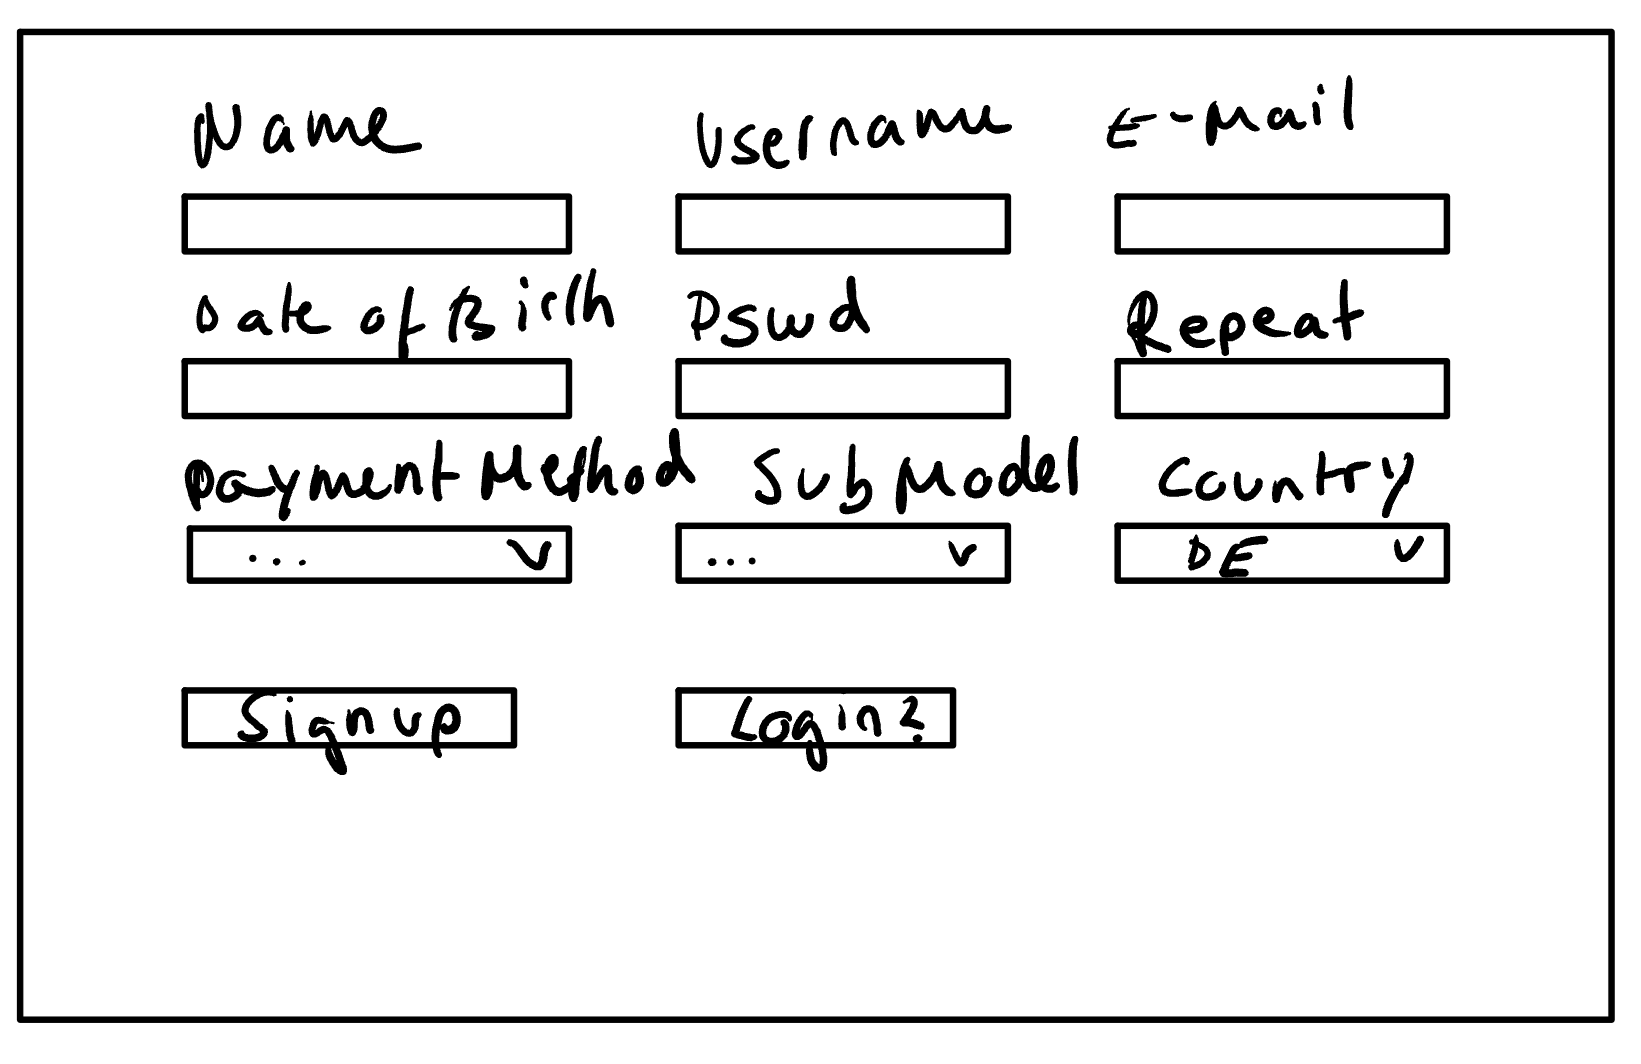 Name Username E-Mail
Date of Birth Pswd Repeat
Payment Method Sub Model Country
... ... DE
Sign up Login?